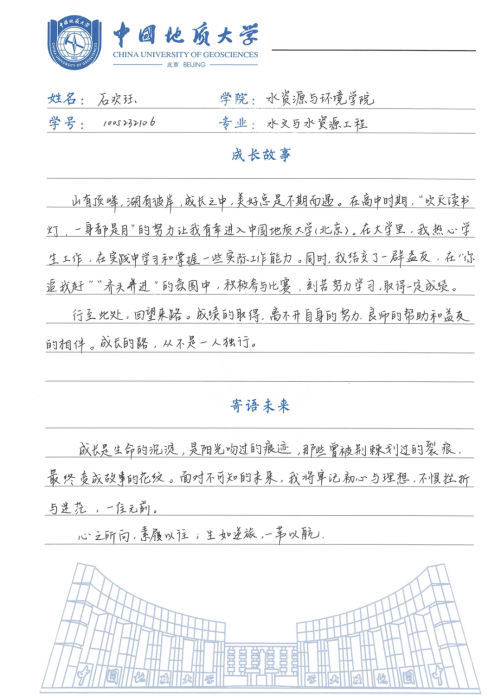 中国地质大学
CHINA UNIVERSITY OF GEOSCIENCES
北京 BEIJING
姓名：石欢 学院：水资源与环境学院
学号：1005232106 专业：水文与水资源工程
成长故事
山有顶峰，湖有彼岸，成长之中，美好总是不期而遇。在高中时期，“吹灭读书
灯，一身都是月”的努力让我有幸进入中国地质大学(北京)。在大学里，我热心学
生工作，在实践中学习和掌握一些实际工作能力。同时，我结交了一群益友，在“你
追我赶”“齐头并进”的氛围中，积极参与比赛，刻苦努力学习，取得一定成绩。
行至此处，回望来路。成绩的取得，离不开自身的努力，良师的帮助和益友
的相伴。成长的路，从不是一人独行。
寄语未来
成长是生命的沉淀，是阳光吻过的痕迹，那些曾被荆棘划过的裂痕，
最终变成故事的花纹。面对不可知的未来，我将牢记初心与理想，不惧挫折
与迷茫，一往无前。
心之所向，素履以往；生如逆旅，一苇以航。
中国地质大学 地质大学